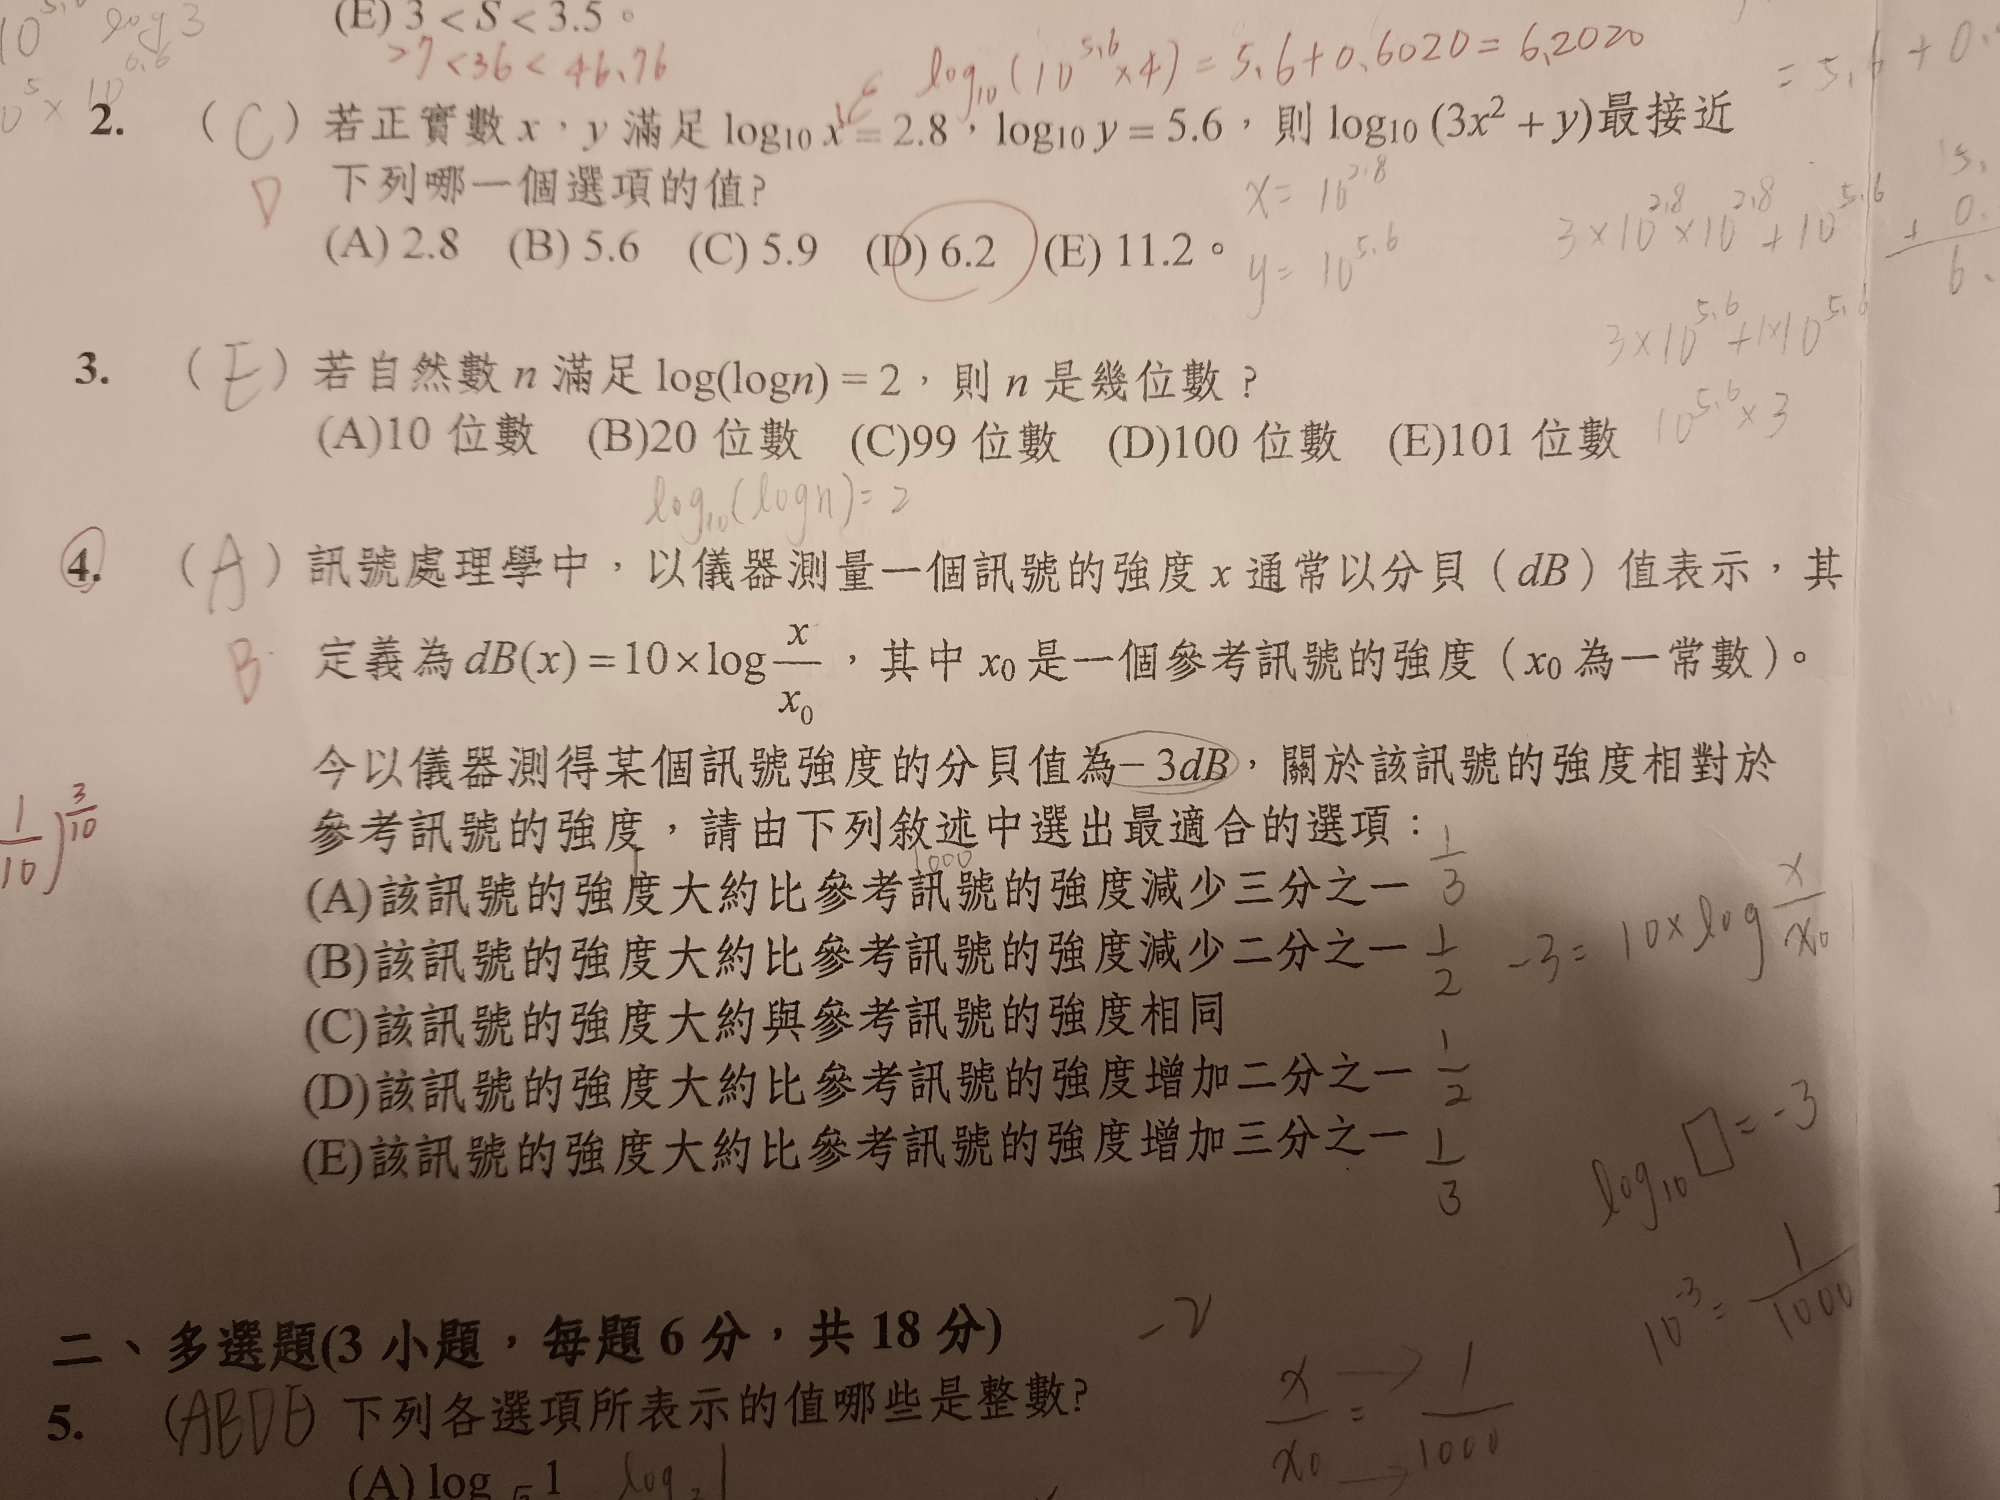 (E) 3 < S < 3.5。
log 3
27 < 36 < 46.76
log₁₀(10^5.6 × 4) = 5.6 + 0.6020 = 6.2020
= 5.6 + 0.
2. ( C ) 若正實數 x，y 滿足 log₁₀ x = 2.8，log₁₀ y = 5.6，則 log₁₀ (3x² + y)最接近
D 下列哪一個選項的值?
(A) 2.8 (B) 5.6 (C) 5.9 (D) 6.2 (E) 11.2。
x = 10^2.8
y = 10^5.6
3×10^2.8×10^2.8+10^5.6
3×10^5.6+1×10^5.6
10^5.6×3
3. ( E ) 若自然數 n 滿足 log(logn) = 2，則 n 是幾位數？
(A)10 位數 (B)20 位數 (C)99 位數 (D)100 位數 (E)101 位數
log₁₀(logn) = 2
4. ( A ) 訊號處理學中，以儀器測量一個訊號的強度 x 通常以分貝（dB）值表示，其
B 定義為 dB(x) = 10×log x/x₀，其中 x₀ 是一個參考訊號的強度（x₀ 為一常數）。
今以儀器測得某個訊號強度的分貝值為−3dB，關於該訊號的強度相對於
參考訊號的強度，請由下列敘述中選出最適合的選項：
1/10)^3/10
1000
(A)該訊號的強度大約比參考訊號的強度減少三分之一 1/3
(B)該訊號的強度大約比參考訊號的強度減少二分之一 1/2
-3 = 10×log x/x₀
(C)該訊號的強度大約與參考訊號的強度相同
(D)該訊號的強度大約比參考訊號的強度增加二分之一 1/2
(E)該訊號的強度大約比參考訊號的強度增加三分之一 1/3
log₁₀□ = -3
10^-3 = 1/1000
二、多選題(3 小題，每題 6 分，共 18 分)
x/x₀ = 1/1000
5. (ABDE) 下列各選項所表示的值哪些是整數?
(A) log